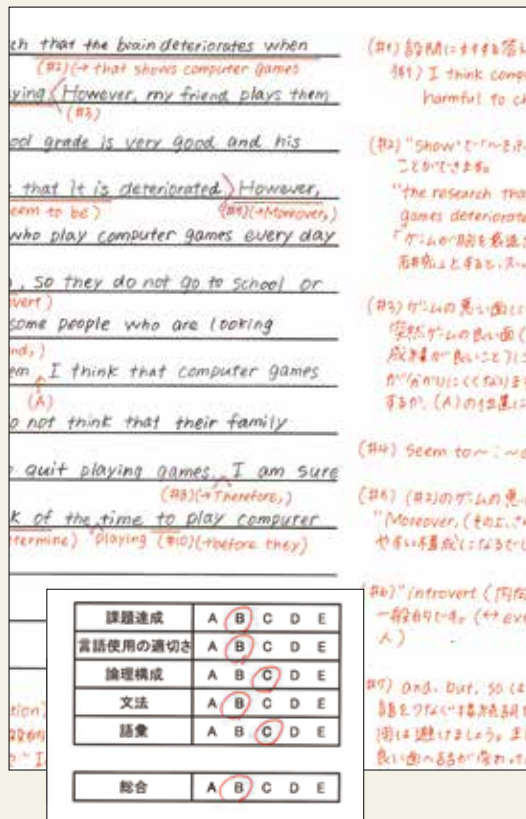 ch that the brain deteriorates when
(#2)(→ that shows computer games
ying. However, my friend plays them
(#3)
ool grade is very good and his
that it is deteriorated. However,
eem to be) (#5)(→Moreover,)
who play computer games every day
, so they do not go to school or
vert)
some people who are looking
nd,)
em. I think that computer games
(A)
o not think that their family
quit playing games. I am sure
(#8)(→Therefore,)
k of the time to play computer
termine) playing (#10)(→before they)
(#1) 設問に対する答え
例1) I think comp
harmful to ch
(#2) "show"で「～を示
ことができます。
"the research tha
games deteriorate
(#3) ゲームの悪い面に
突然ゲームの良い面(
成績が良いこと)に
が分かりにくくなりま
するか、(A)の位置に
(#4) seem to~ : ~
(#5) (#2)のゲームの悪い
"Moreover, (その上、さ
やすい構成になるでし
(#6) "introvert (内向
一般的です。(↔ ex
人)
(#7) and, but, so は
語をつなぐ接続詞
用は避けましょう。
良い面へ話が変わって
課題達成 A B C D E
言語使用の適切さ A B C D E
論理構成 A B C D E
文法 A B C D E
語彙 A B C D E
総合 A B C D E